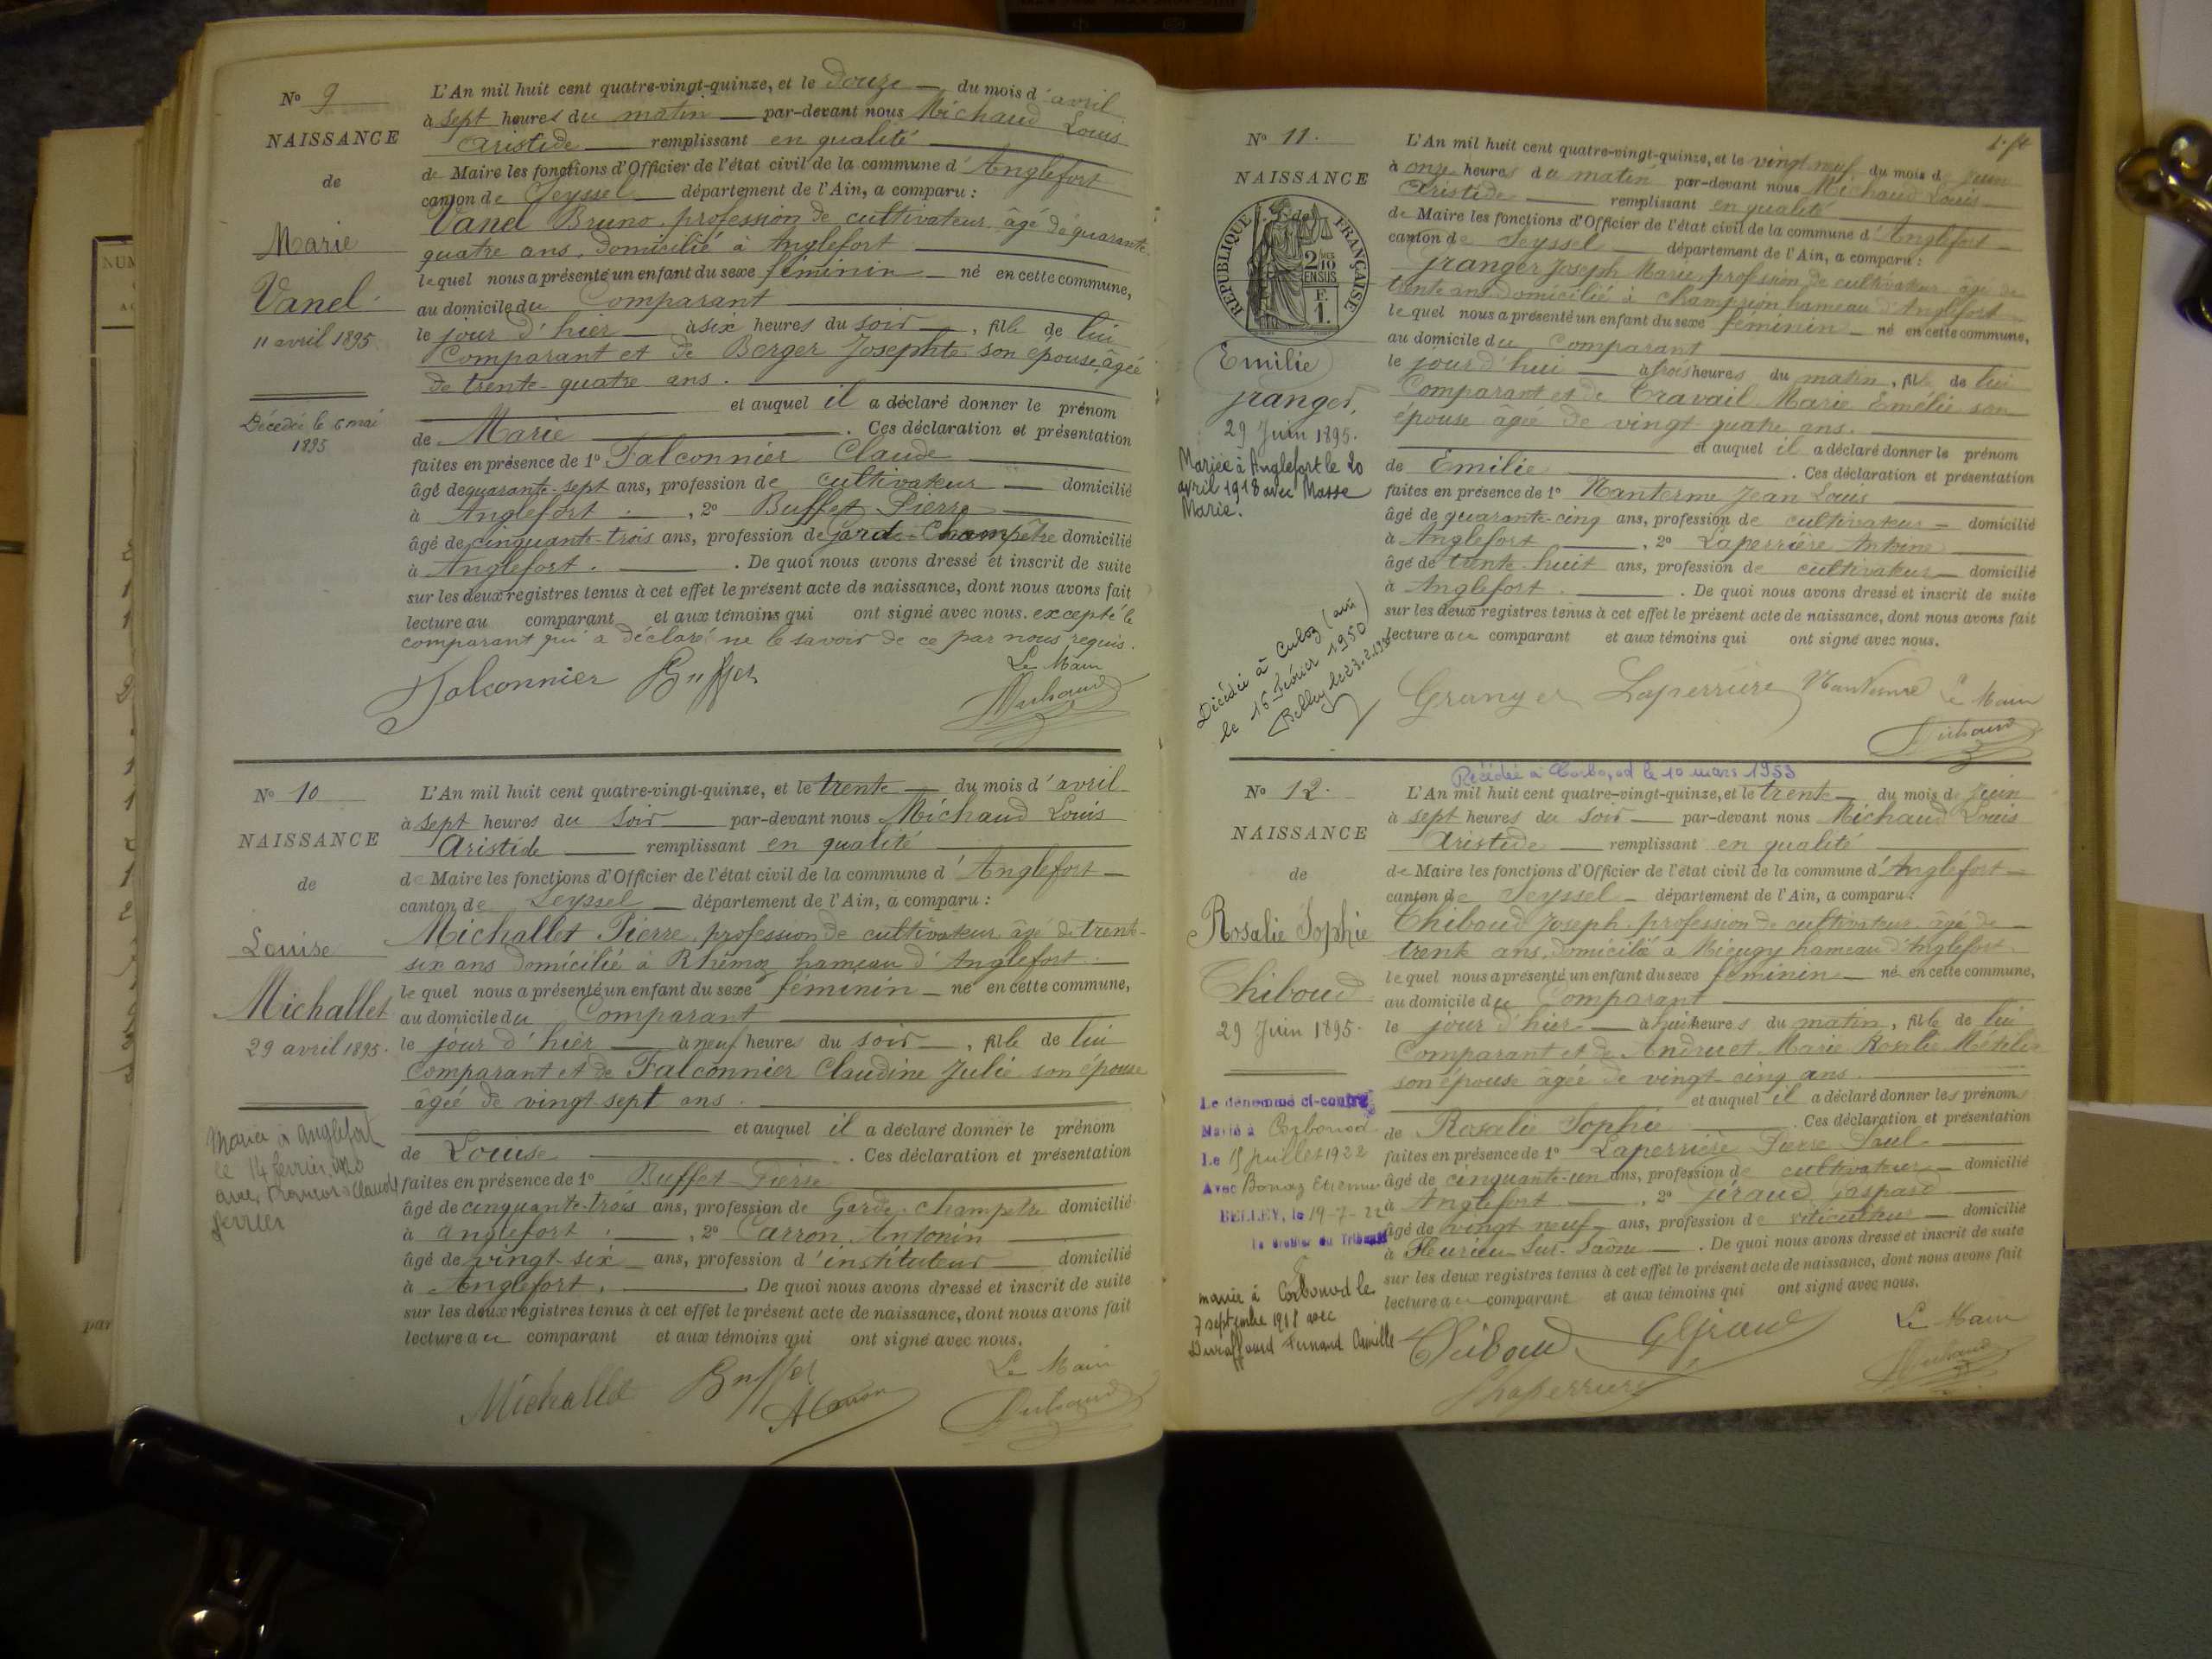 N° 9
NAISSANCE
de
Marie
Vanel
11 avril 1895
Décédée le 6 mai
1895
L'An mil huit cent quatre-vingt-quinze, et le douze — du mois d'avril
à sept heures du matin — par-devant nous Michaud Louis
Aristide — remplissant en qualité
de Maire les fonctions d'Officier de l'état civil de la commune d'Anglefort
canton de Seyssel — département de l'Ain, a comparu :
Vanel Bruno, profession de cultivateur âgé de quarante-
quatre ans, domicilié à Anglefort
lequel nous a présenté un enfant du sexe féminin — né en cette commune,
au domicile du Comparant
le jour d'hier — à six heures du soir —, fille de lui
Comparant et de Berger Josephte son épouse âgée
de trente-quatre ans.
et auquel il a déclaré donner le prénom
de Marie . Ces déclaration et présentation
faites en présence de 1° Falconnier Claude
âgé de quarante-sept ans, profession de cultivateur — domicilié
à Anglefort , 2° Buffet Pierre
âgé de cinquante-trois ans, profession de garde-Champêtre domicilié
à Anglefort. . De quoi nous avons dressé et inscrit de suite
sur les deux registres tenus à cet effet le présent acte de naissance, dont nous avons fait
lecture au comparant et aux témoins qui ont signé avec nous. excepté le
comparant qui a déclaré ne le savoir de ce par nous requis.
Falconnier Buffet Le Maire
Michaud
N° 10
NAISSANCE
de
Louise
Michallet
29 avril 1895.
Mariée à Anglefort
le 14 février 1920
avec François Claude
Ferrier
L'An mil huit cent quatre-vingt-quinze, et le trente — du mois d'avril
à sept heures du soir — par-devant nous Michaud Louis
Aristide — remplissant en qualité
de Maire les fonctions d'Officier de l'état civil de la commune d'Anglefort —
canton de Seyssel — département de l'Ain, a comparu :
Michallet Pierre, profession de cultivateur âgé de trente-
six ans domicilié à Rhémoz hameau d'Anglefort.
lequel nous a présenté un enfant du sexe féminin — né en cette commune,
au domicile du Comparant
le jour d'hier — à neuf heures du soir —, fille de lui
Comparant et de Falconnier Claudine Julie son épouse
âgée de vingt-sept ans.
et auquel il a déclaré donner le prénom
de Louise . Ces déclaration et présentation
faites en présence de 1° Buffet Pierre
âgé de cinquante-trois ans, profession de Garde-champêtre domicilié
à Anglefort , 2° Carron Antonin
âgé de vingt-six — ans, profession d'instituteur — domicilié
à Anglefort. De quoi nous avons dressé et inscrit de suite
sur les deux registres tenus à cet effet le présent acte de naissance, dont nous avons fait
lecture au comparant et aux témoins qui ont signé avec nous.
Michallet Buffet Le Maire
A Carron Michaud
N° 11.
NAISSANCE
de
RÉPUBLIQUE FRANÇAISE
2/10 EN SUS
F. 1.
Emilie
Granger,
29 Juin 1895.
Mariée à Anglefort le 20
avril 1918 avec Masse
Marie.
Décédée à Culoz (ain)
le 16 Février 1950
Belley le 23.2.1950
L'An mil huit cent quatre-vingt-quinze, et le vingt neuf du mois de Juin
à onze heures du matin par-devant nous Michaud Louis
Aristide — remplissant en qualité
de Maire les fonctions d'Officier de l'état civil de la commune d'Anglefort
canton de Seyssel — département de l'Ain, a comparu :
Granger Joseph Marie, profession de cultivateur âgé de
trente ans domicilié à Champrion hameau d'Anglefort
lequel nous a présenté un enfant du sexe féminin — né en cette commune,
au domicile du Comparant
le jour d'hui — à trois heures du matin, fille de lui
Comparant et de Travail Marie Emélie son
épouse âgée de vingt-quatre ans.
et auquel il a déclaré donner le prénom
de Emilie . Ces déclaration et présentation
faites en présence de 1° Nanterme Jean Louis
âgé de quarante-cinq ans, profession de cultivateur — domicilié
à Anglefort , 2° Laperrière Antoine
âgé de trente-huit ans, profession de cultivateur — domicilié
à Anglefort . De quoi nous avons dressé et inscrit de suite
sur les deux registres tenus à cet effet le présent acte de naissance, dont nous avons fait
lecture au comparant et aux témoins qui ont signé avec nous.
Granger Laperrière Nanterme Le Maire
Michaud
Décédée à Corbonod le 10 mars 1953
N° 12.
NAISSANCE
de
Rosalie Sophie
Thiboud
29 Juin 1895.
Le dénommé ci-contre
Marié à Corbonod
Le 15 Juillet 1922
Avec Bonaz Etienne
BELLEY, le 19-7-22
Le Greffier du Tribunal
mariée à Corbonod le
7 septembre 1918 avec
Duraffourd Fernand Camille
L'An mil huit cent quatre-vingt-quinze, et le trente — du mois de Juin
à sept heures du soir — par-devant nous Michaud Louis
Aristide — remplissant en qualité
de Maire les fonctions d'Officier de l'état civil de la commune d'Anglefort —
canton de Seyssel — département de l'Ain, a comparu :
Thiboud Joseph, profession de cultivateur âgé de
trente ans domicilié à Mieugy hameau d'Anglefort.
lequel nous a présenté un enfant du sexe féminin — né en cette commune,
au domicile du Comparant
le jour d'hier — à huit heures du matin, fille de lui
Comparant et de Andruet Marie Rosalie
son épouse âgée de vingt-cinq ans.
et auquel il a déclaré donner les prénoms
de Rosalie Sophie . Ces déclaration et présentation
faites en présence de 1° Laperrière Pierre Paul
âgé de cinquante-un ans, profession de cultivateur — domicilié
à Anglefort , 2° Géraud Gaspard
âgé de vingt neuf — ans, profession de viticulteur — domicilié
à Fleurieu-Sur-Saône — . De quoi nous avons dressé et inscrit de suite
sur les deux registres tenus à cet effet le présent acte de naissance, dont nous avons fait
lecture au comparant et aux témoins qui ont signé avec nous.
Thiboud G Géraud Le Maire
Laperrière Michaud